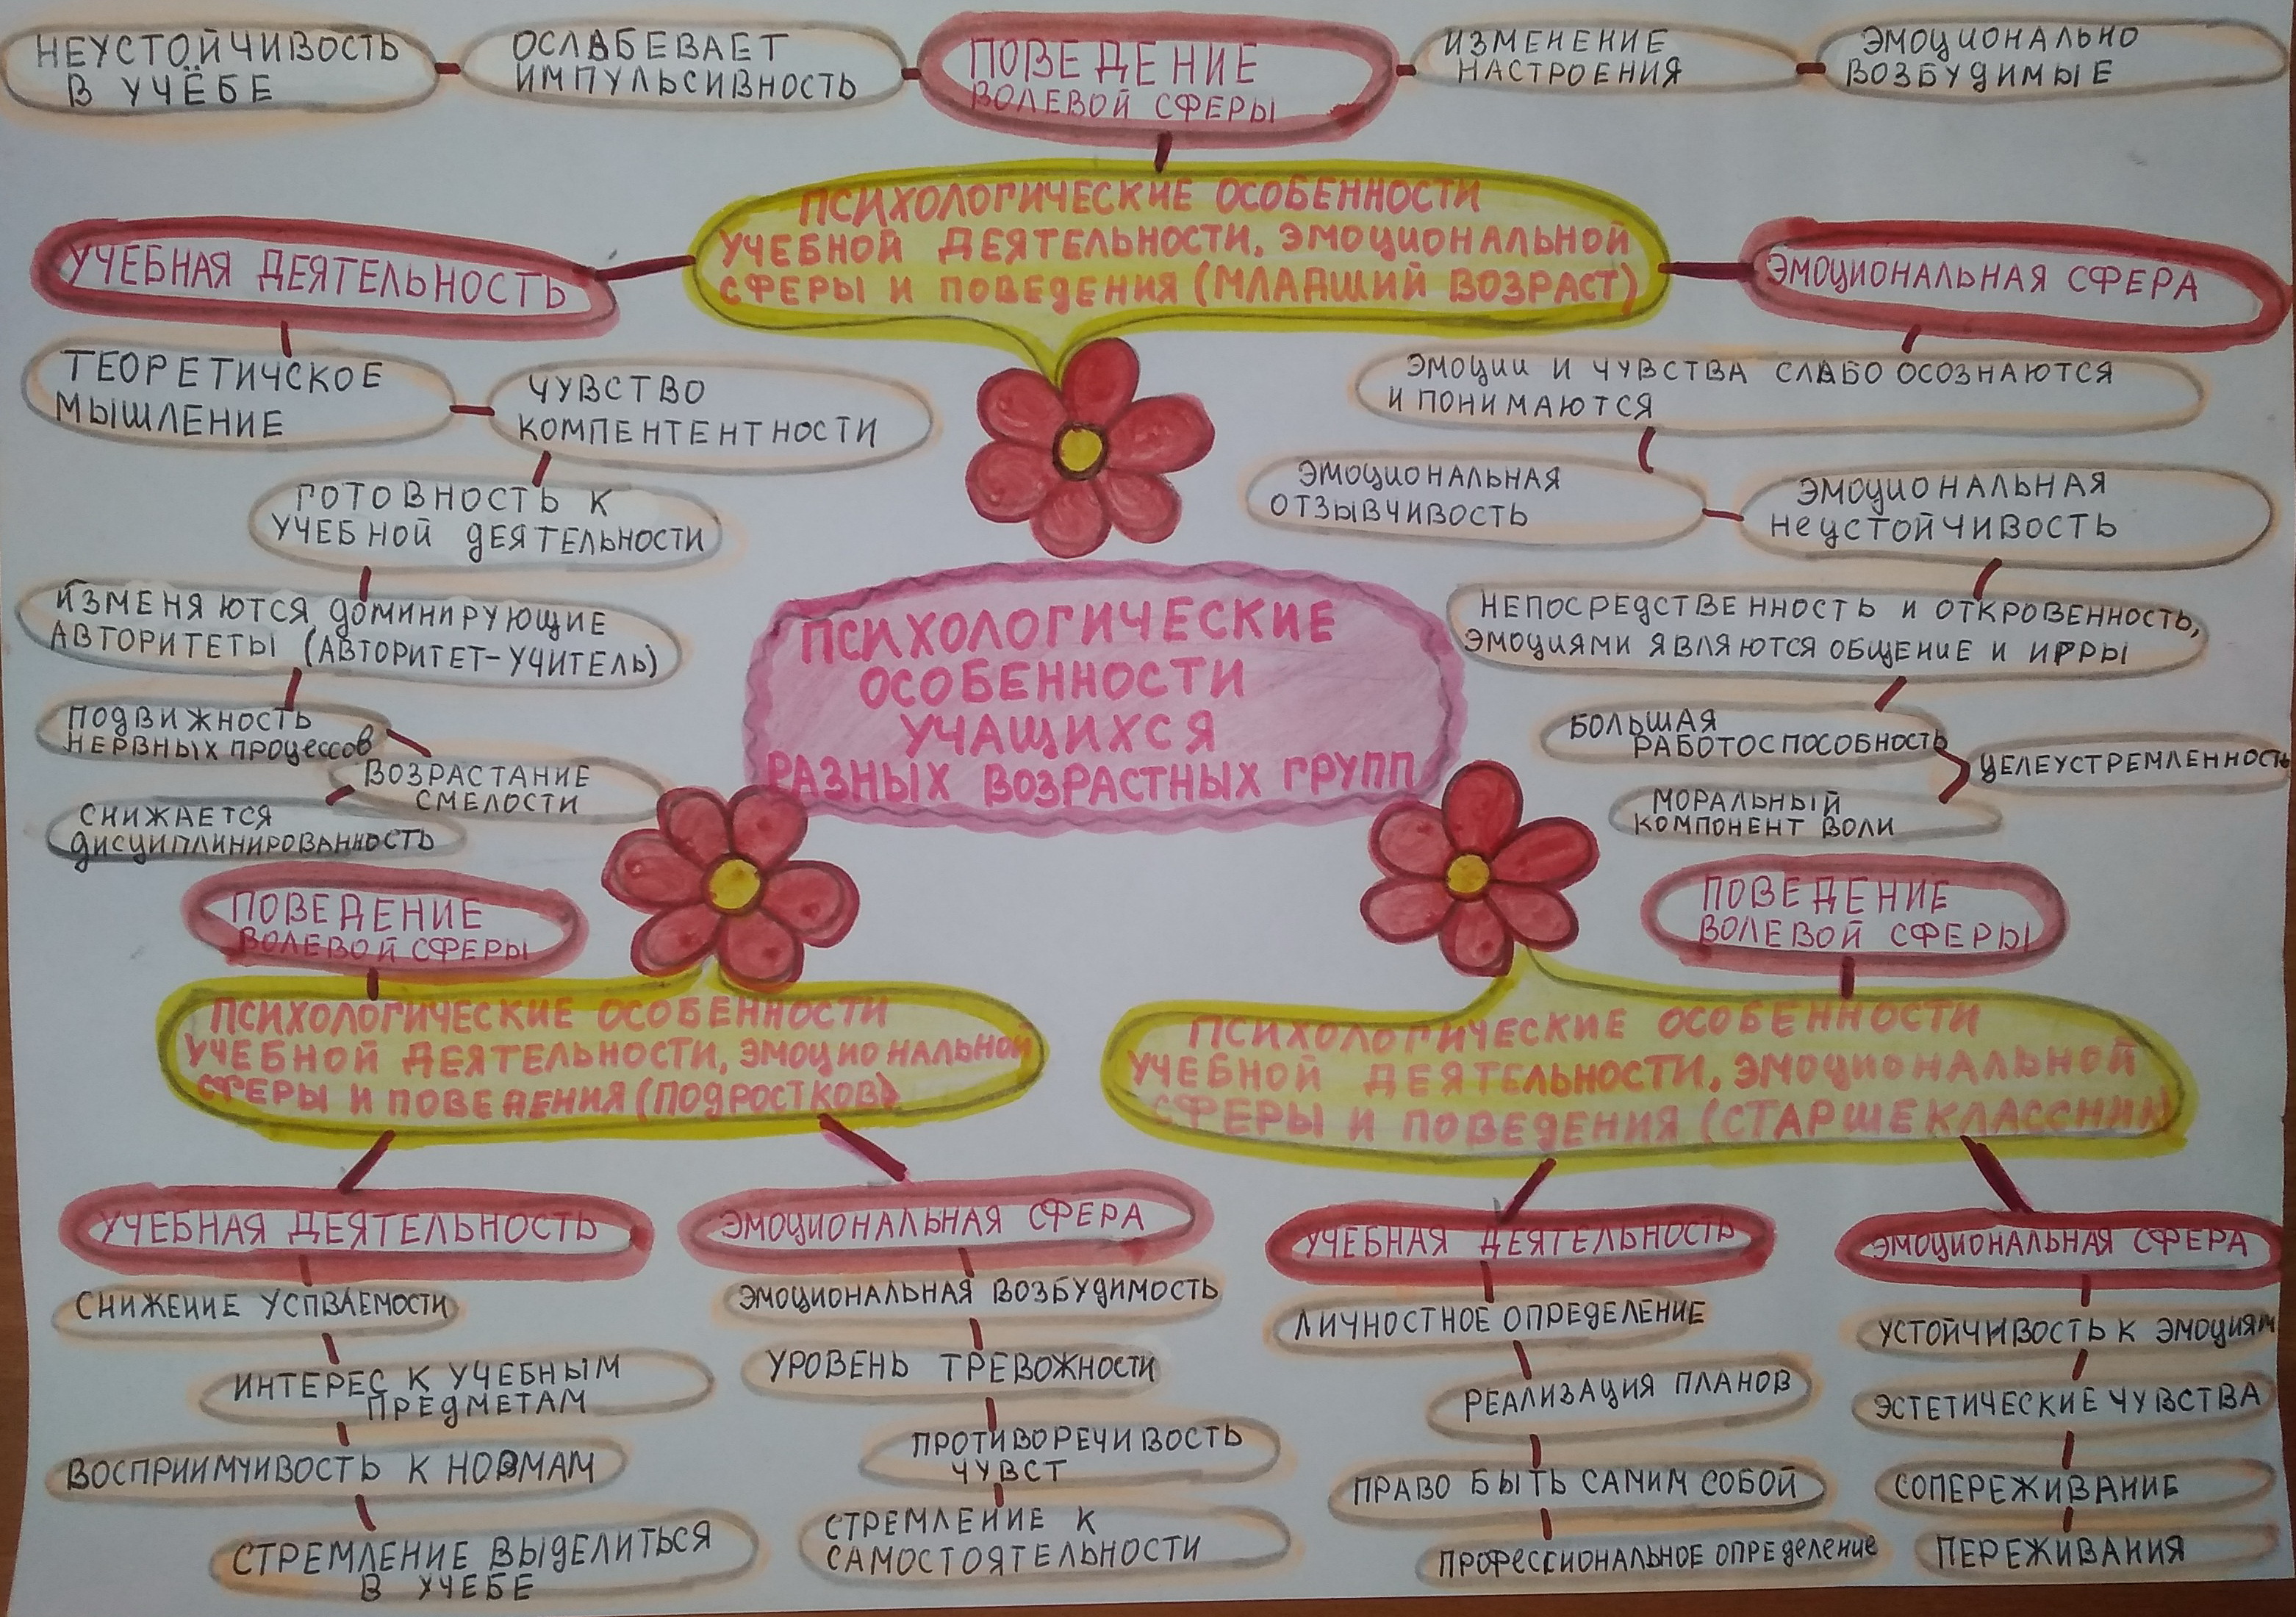 НЕУСТОЙЧИВОСТЬ
В УЧЁБЕ
ОСЛАБЕВАЕТ
ИМПУЛЬСИВНОСТЬ
ПОВЕДЕНИЕ
ВОЛЕВОЙ СФЕРЫ
ИЗМЕНЕНИЕ
НАСТРОЕНИЯ
ЭМОЦИОНАЛЬНО
ВОЗБУДИМЫЕ
ПСИХОЛОГИЧЕСКИЕ ОСОБЕННОСТИ
УЧЕБНОЙ ДЕЯТЕЛЬНОСТИ, ЭМОЦИОНАЛЬНОЙ
СФЕРЫ И ПОВЕДЕНИЯ (МЛАДШИЙ ВОЗРАСТ)
УЧЕБНАЯ ДЕЯТЕЛЬНОСТЬ
ТЕОРЕТИЧСКОЕ
МЫШЛЕНИЕ
ЧУВСТВО
КОМПЕНТЕНТНОСТИ
ГОТОВНОСТЬ К
УЧЕБНОЙ ДЕЯТЕЛЬНОСТИ
ИЗМЕНЯЮТСЯ ДОМИНИРУЮЩИЕ
АВТОРИТЕТЫ (АВТОРИТЕТ-УЧИТЕЛЬ)
ЭМОЦИОНАЛЬНАЯ СФЕРА
ЭМОЦИИ И ЧУВСТВА СЛАБО ОСОЗНАЮТСЯ
И ПОНИМАЮТСЯ
ЭМОЦИОНАЛЬНАЯ
ОТЗЫВЧИВОСТЬ
ЭМОЦИОНАЛЬНАЯ
НЕУСТОЙЧИВОСТЬ
НЕПОСРЕДСТВЕННОСТЬ И ОТКРОВЕННОСТЬ,
ЭМОЦИЯМИ ЯВЛЯЮТСЯ ОБЩЕНИЕ И ИГРЫ
ПСИХОЛОГИЧЕСКИЕ
ОСОБЕННОСТИ
УЧАЩИХСЯ
РАЗНЫХ ВОЗРАСТНЫХ ГРУПП
ПОДВИЖНОСТЬ
НЕРВНЫХ ПРОЦЕССОВ
ВОЗРАСТАНИЕ
СМЕЛОСТИ
СНИЖАЕТСЯ
ДИСЦИПЛИНИРОВАННОСТЬ
ПОВЕДЕНИЕ
ВОЛЕВОЙ СФЕРЫ
ПСИХОЛОГИЧЕСКИЕ ОСОБЕННОСТИ
УЧЕБНОЙ ДЕЯТЕЛЬНОСТИ, ЭМОЦИОНАЛЬНОЙ
СФЕРЫ И ПОВЕДЕНИЯ (ПОДРОСТКОВ)
УЧЕБНАЯ ДЕЯТЕЛЬНОСТЬ
СНИЖЕНИЕ УСПВАЕМОСТИ
ИНТЕРЕС К УЧЕБНЫМ
ПРЕДМЕТАМ
ВОСПРИИМЧИВОСТЬ К НОРМАМ
СТРЕМЛЕНИЕ ВЫДЕЛИТЬСЯ
В УЧЕБЕ
ЭМОЦИОНАЛЬНАЯ СФЕРА
ЭМОЦИОНАЛЬНАЯ ВОЗБУДИМОСТЬ
УРОВЕНЬ ТРЕВОЖНОСТИ
ПРОТИВОРЕЧИВОСТЬ
ЧУВСТ
СТРЕМЛЕНИЕ К
САМОСТОЯТЕЛЬНОСТИ
БОЛЬШАЯ
РАБОТОСПОСОБНОСТЬ
ЦЕЛЕУСТРЕМЛЕННОСТЬ
МОРАЛЬНЫЙ
КОМПОНЕНТ ВОЛИ
ПОВЕДЕНИЕ
ВОЛЕВОЙ СФЕРЫ
ПСИХОЛОГИЧЕСКИЕ ОСОБЕННОСТИ
УЧЕБНОЙ ДЕЯТЕЛЬНОСТИ, ЭМОЦИОНАЛЬНОЙ
СФЕРЫ И ПОВЕДЕНИЯ (СТАРШЕКЛАССНИК
УЧЕБНАЯ ДЕЯТЕЛЬНОСТЬ
ЛИЧНОСТНОЕ ОПРЕДЕЛЕНИЕ
РЕАЛИЗАЦИЯ ПЛАНОВ
ПРАВО БЫТЬ САМИМ СОБОЙ
ПРОФЕССИОНАЛЬНОЕ ОПРЕДЕЛЕНИЕ
ЭМОЦИОНАЛЬНАЯ СФЕРА
УСТОЙЧИВОСТЬ К ЭМОЦИЯМ
ЭСТЕТИЧЕСКИЕ ЧУВСТВА
СОПЕРЕЖИВАНИЕ
ПЕРЕЖИВАНИЯ